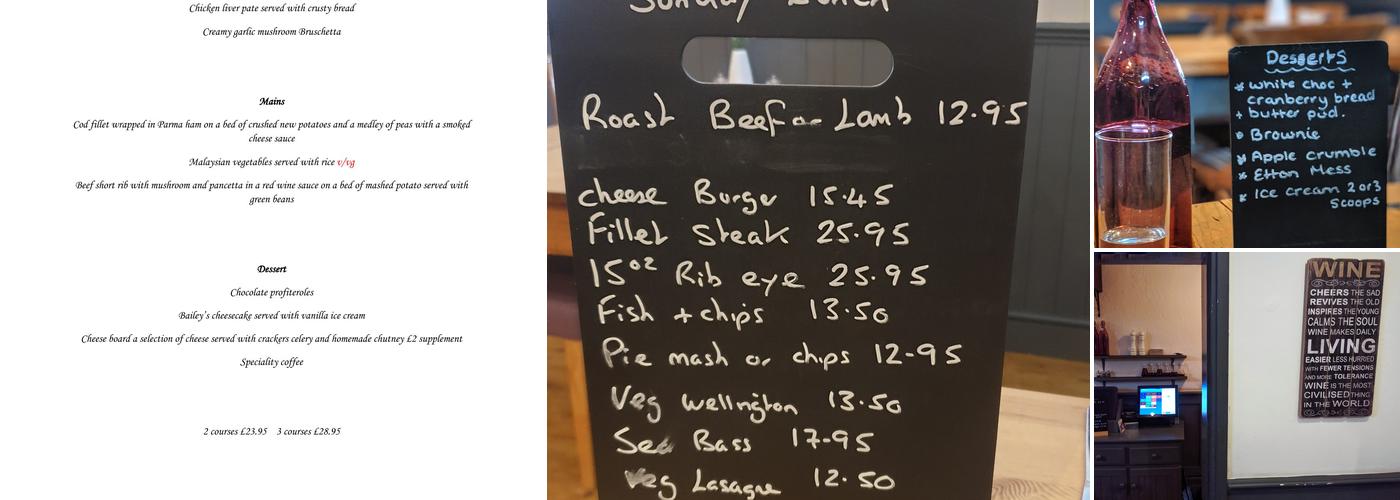 Chicken liver pate served with crusty bread
Creamy garlic mushroom Bruschetta
Mains
Cod fillet wrapped in Parma ham on a bed of crushed new potatoes and a medley of peas with a smoked
cheese sauce
Malaysian vegetables served with rice v/vg
Beef short rib with mushroom and pancetta in a red wine sauce on a bed of mashed potato served with
green beans
Dessert
Chocolate profiteroles
Bailey's cheesecake served with vanilla ice cream
Cheese board a selection of cheese served with crackers celery and homemade chutney £2 supplement
Speciality coffee
2 courses £23.95 3 courses £28.95
Sunday Lunch
Roast Beef or Lamb 12.95
cheese Burger 15.45
Fillet Steak 25.95
15oz Rib eye 25.95
Fish + chips 13.50
Pie mash or chips 12-95
Veg wellington 13.50
Sea Bass 17-95
Veg Lasagne 12.50
Desserts
* white choc +
cranberry bread
+ butter pud.
* Brownie
* Apple Crumble
* Etton Mess
* Ice cream 2 or 3
Scoops
WINE
CHEERS THE SAD
REVIVES THE OLD
INSPIRES THE YOUNG
CALMS THE SOUL
WINE MAKES DAILY
LIVING
EASIER LESS HURRIED
WITH FEWER TENSIONS
AND MORE TOLERANCE
WINE IS THE MOST
CIVILISED THING
IN THE WORLD